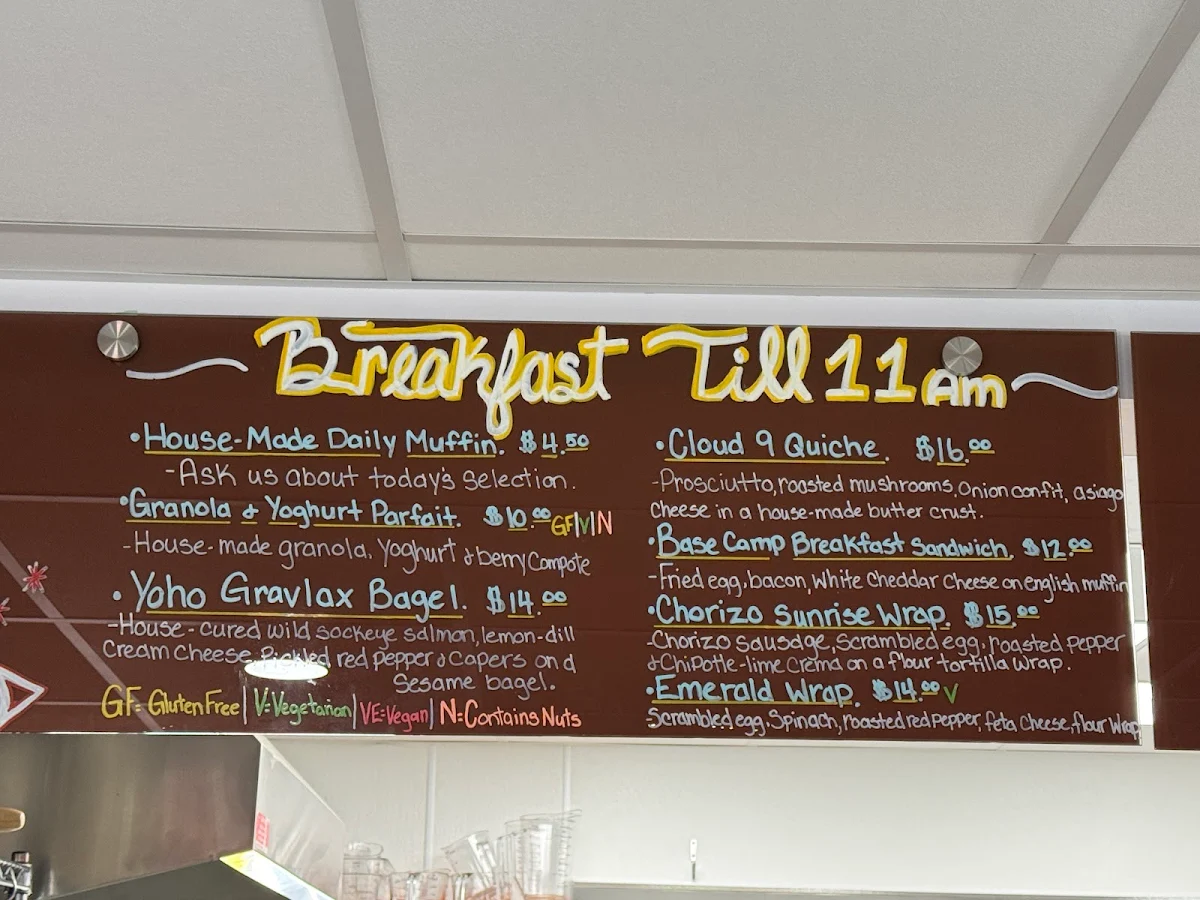 Breakfast Till 11 Am
•House-Made Daily Muffin. $4.50
-Ask us about today's selection.
•Granola & Yoghurt Parfait. $10.00 GF|V|N
-House-made granola, Yoghurt & berry Compote
•Yoho Gravlax Bagel. $14.00
-House-cured wild sockeye salmon, lemon-dill
Cream Cheese, Pickled red pepper & Capers on a
Sesame bagel.
GF=Gluten Free | V=Vegetarian | VE=Vegan | N=Contains Nuts
•Cloud 9 Quiche. $16.00
-Prosciutto, roasted mushrooms, Onion confit, asiago
Cheese in a house-made butter crust.
•Base Camp Breakfast Sandwich. $12.00
-Fried egg, bacon, White Cheddar Cheese on english muffin
•Chorizo Sunrise Wrap. $15.00
-Chorizo Sausage, Scrambled egg, roasted Pepper
& Chipotle-lime Crema on a flour tortilla wrap.
•Emerald Wrap. $14.00 V
Scrambled egg, Spinach, roasted red pepper, feta Cheese, flour Wrap